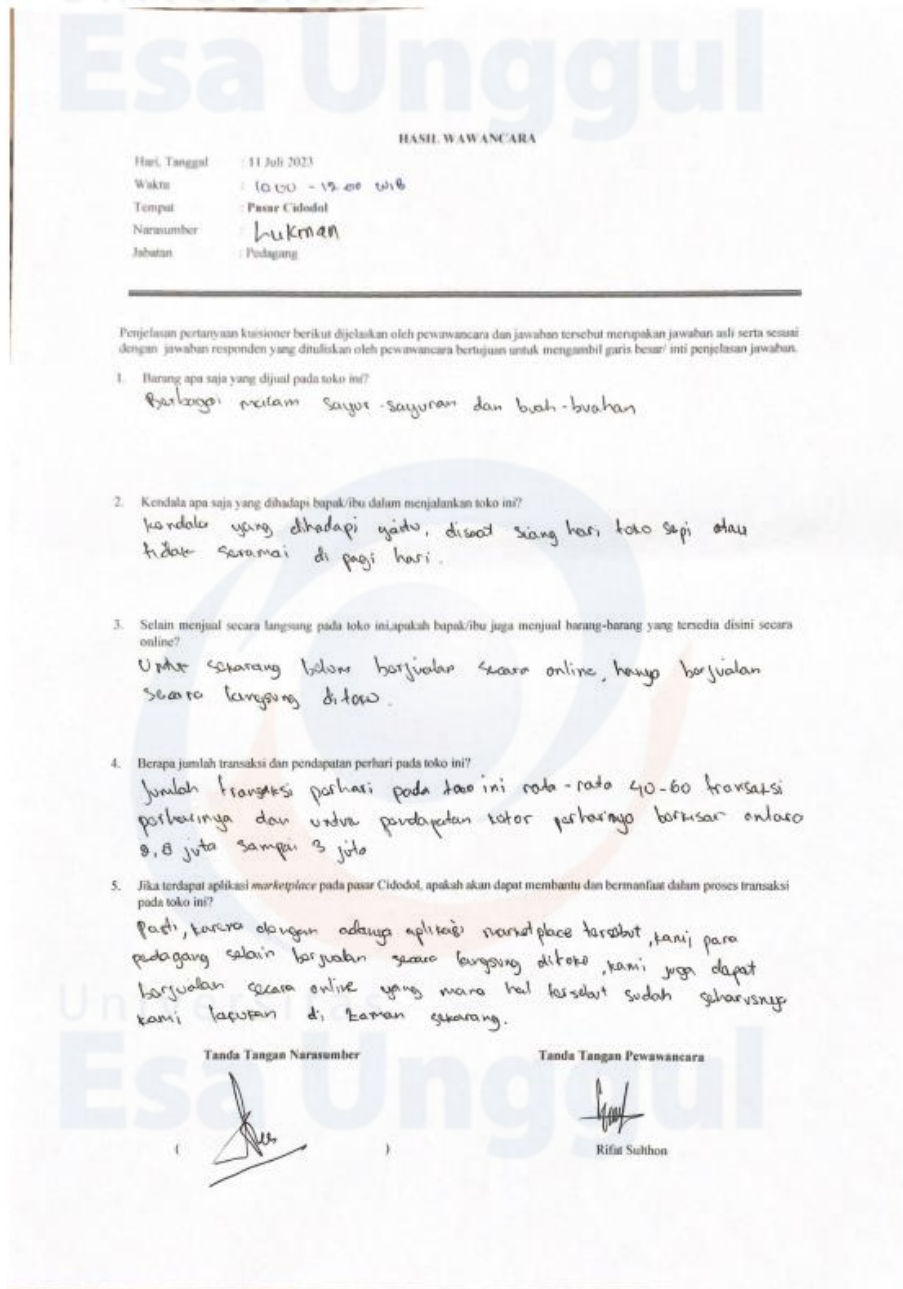 Esa Unggul
HASIL WAWANCARA
Hari, Tanggal : 11 Juli 2023
Waktu : 10.00 - 12.00 WIB
Tempat : Pasar Cidodol
Narasumber : Lukman
Jabatan : Pedagang
Penjelasan pertanyaan kuisioner berikut dijelaskan oleh pewawancara dan jawaban tersebut merupakan jawaban asli serta sesuai
dengan jawaban responden yang dituliskan oleh pewawancara bertujuan untuk mengambil garis besar/ inti penjelasan jawaban.
1. Barang apa saja yang dijual pada toko ini?
Berbagai macam sayur-sayuran dan buah-buahan
2. Kendala apa saja yang dihadapi bapak/ibu dalam menjalankan toko ini?
kendala yang dihadapi yaitu, disaat siang hari toko sepi atau
tidak seramai di pagi hari.
3. Selain menjual secara langsung pada toko ini,apakah bapak/ibu juga menjual barang-barang yang tersedia disini secara
online?
Untuk sekarang belum berjualan secara online, hanya berjualan
secara langsung ditoko.
4. Berapa jumlah transaksi dan pendapatan perhari pada toko ini?
Jumlah transaksi perhari pada toko ini rata-rata 40-60 transaksi
perharinya dan untuk pendapatan kotor perharinya berkisar antara
juta sampai 3 juta
5. Jika terdapat aplikasi marketplace pada pasar Cidodol, apakah akan dapat membantu dan bermanfaat dalam proses transaksi
pada toko ini?
Pasti, karena dengan adanya aplikasi marketplace tersebut, kami para
pedagang selain berjualan secara langsung ditoko, kami juga dapat
berjualan secara online yang mana hal tersebut sudah seharusnya
kami lakukan di zaman sekarang.
Universitas
Esa Unggul
Tanda Tangan Narasumber Tanda Tangan Pewawancara
( )
Rifat Sulthon